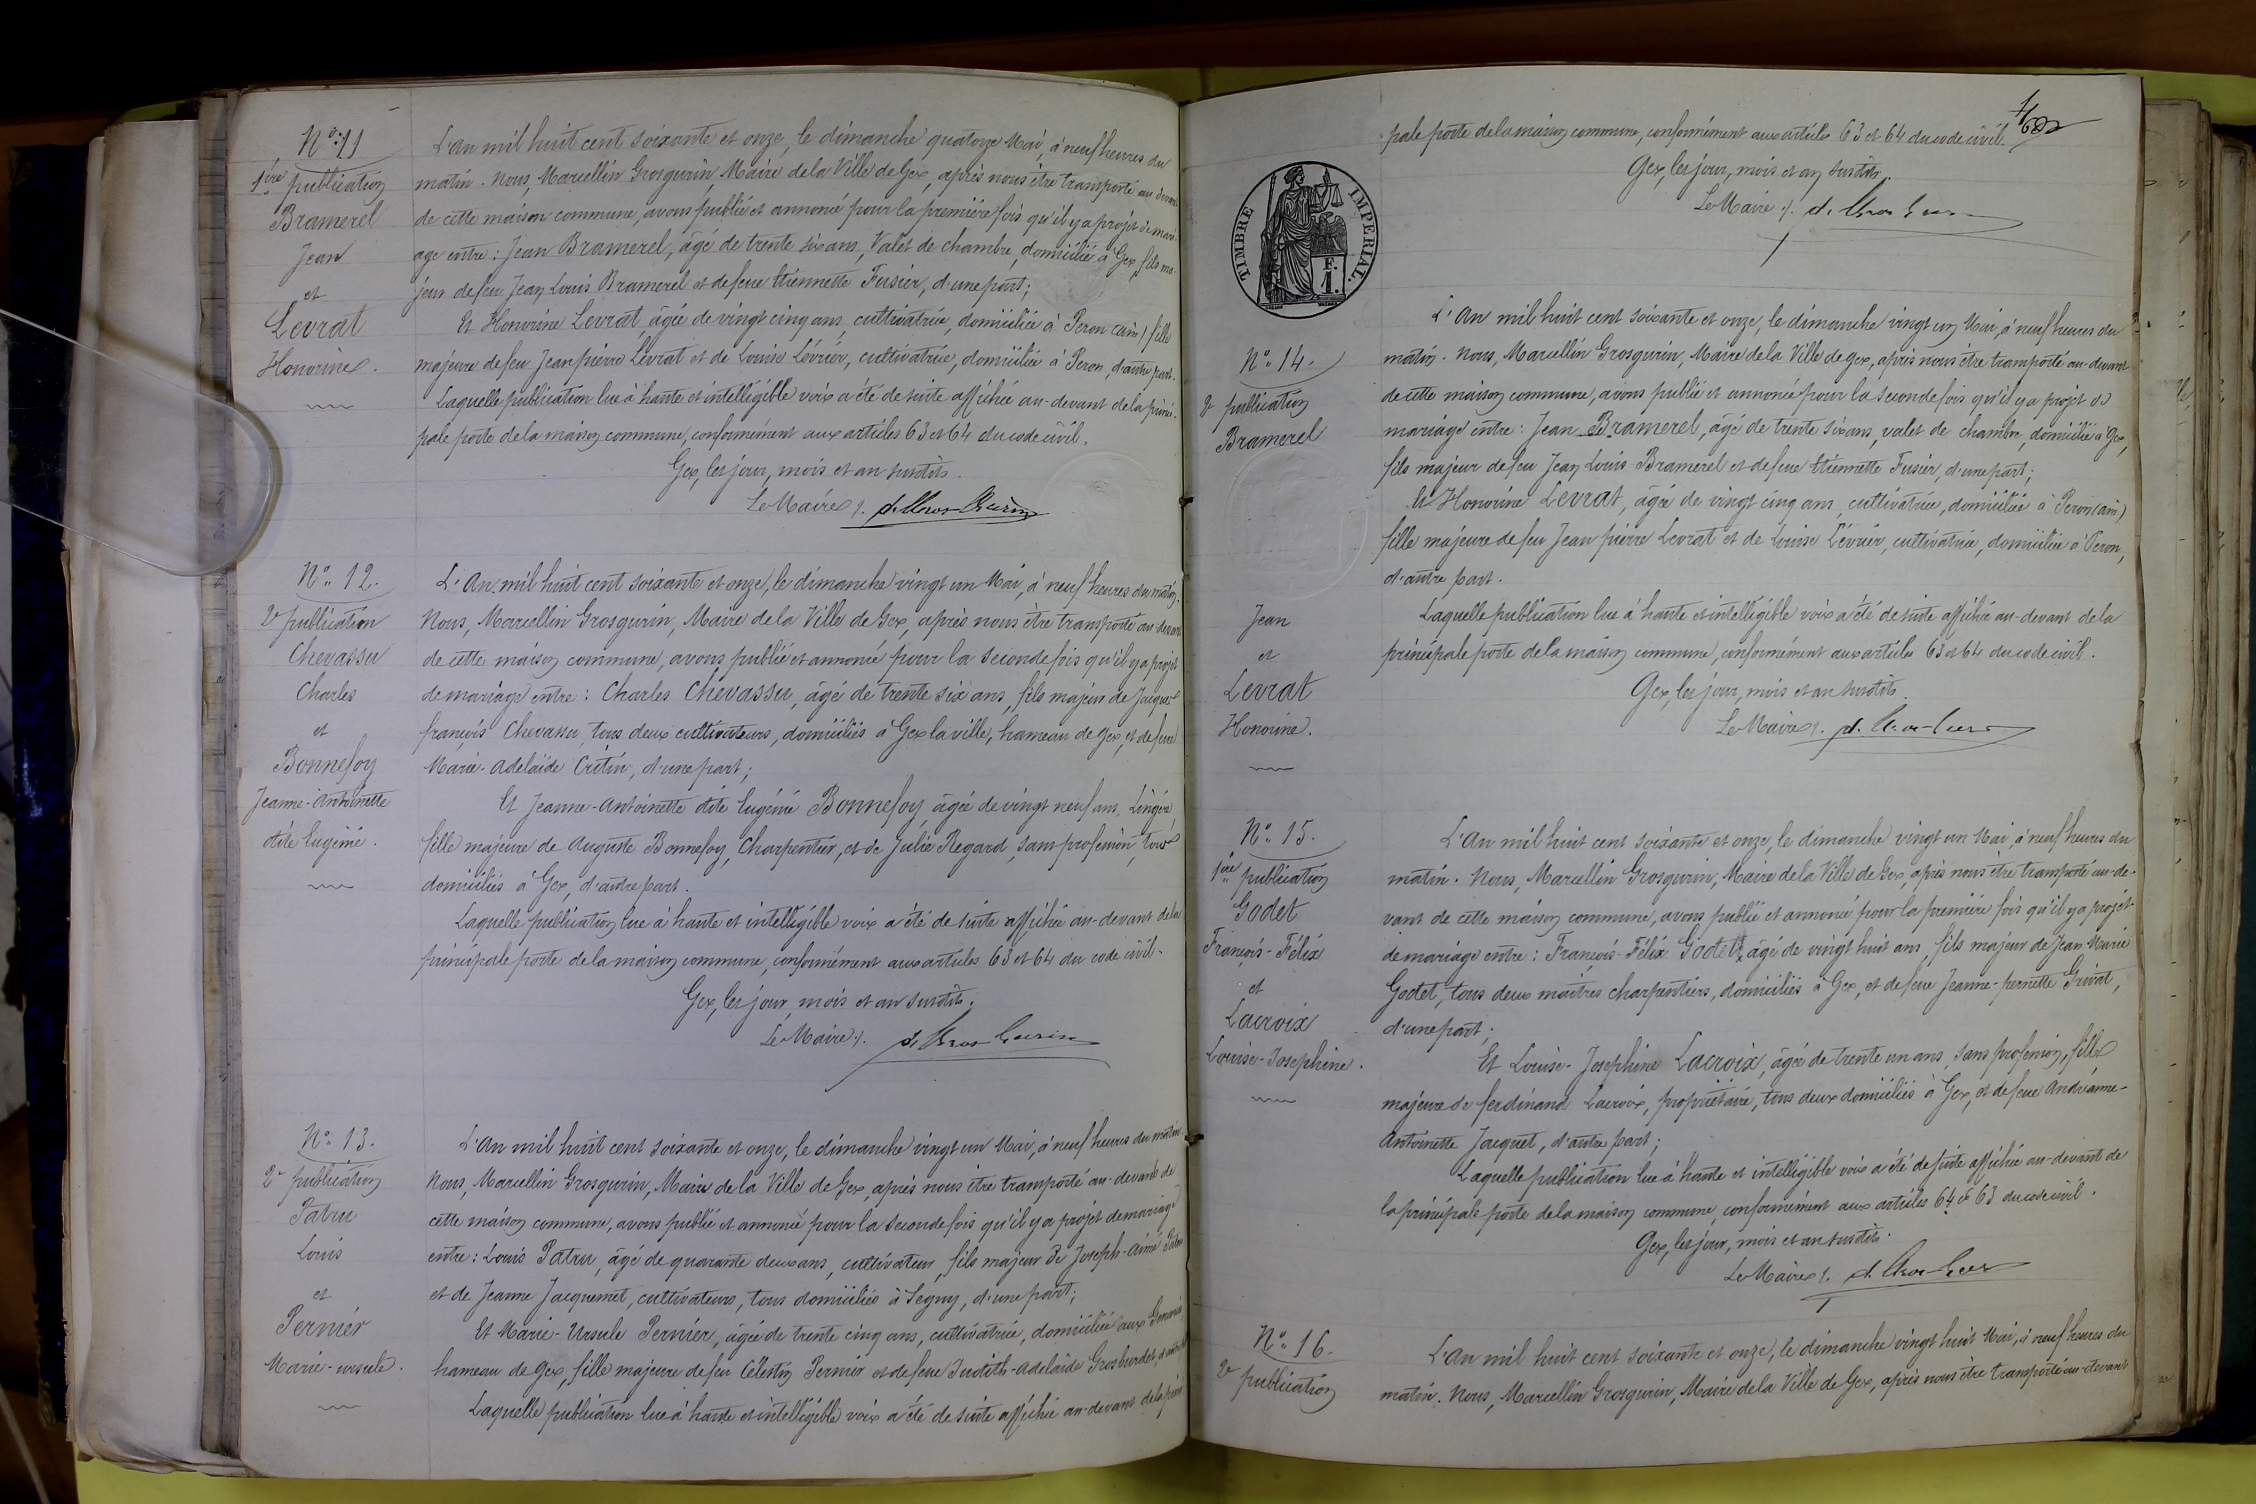 N° 11
1ère publication
Bramerel
Jean
et
Levrat
Honorine.
L'An mil huit cent soixante et onze, le dimanche quatorze Mai, à neuf heures du
matin. Nous, Marcellin Grosgurin, Maire de la Ville de Gex, après nous être transporté au devant
de cette maison commune, avons publié et annoncé pour la première fois qu'il y a projet de mari-
age entre : Jean Bramerel, âgé de trente six ans, Valet de chambre, domicilié à Gex, fils ma-
jeur de feu Jean Louis Bramerel et de feue Etiennette Fusier, d'une part;
Et Honorine Levrat, âgée de vingt cinq ans, cultivatrice, domiciliée à Peron (ain) fille
majeure de feu Jean pierre Levrat et de Louise Lévrier, cultivatrice, domiciliée à Peron, d'autre part.
Laquelle publication lue à haute et intelligible voix a été de suite affichée au-devant de la princi-
pale porte de la maison commune, conformément aux articles 63 et 64 du code civil.
Gex, les jour, mois et an susdits.
Le Maire
N° 12.
2e publication
Chevassu
Charles
et
Bonnefoy
Jeanne-Antoinette
dite Eugénie.
L'An mil huit cent soixante et onze, le dimanche vingt un Mai, à neuf heures du matin.
Nous, Marcellin Grosgurin, Maire de la Ville de Gex, après nous être transporté au devant
de cette maison commune, avons publié et annoncé pour la seconde fois qu'il y a projet
de mariage entre : Charles Chevassu, âgé de trente six ans, fils majeur de Jacques
françois Chevassu, tous deux cultivateurs, domiciliés à Gex la ville, hameau de Gex, et de feue
Marie-Adelaïde Crétin, d'une part;
Et Jeanne-Antoinette dite Eugénie Bonnefoy, âgée de vingt neuf ans, Lingère,
fille majeure de Auguste Bonnefoy, Charpentier, et de Julie Regard, sans profession, tous
domiciliés à Gex, d'autre part.
Laquelle publication lue à haute et intelligible voix a été de suite affichée au-devant de la
principale porte de la maison commune, conformément aux articles 63 et 64 du code civil.
Gex, les jour, mois et an susdits.
Le Maire
N° 13.
2e publication
Patru
Louis
et
Pernier
Marie-ursule.
L'An mil huit cent soixante et onze, le dimanche vingt un Mai, à neuf heures du matin
Nous, Marcellin Grosgurin, Maire de la Ville de Gex, après nous être transporté au-devant de
cette maison commune, avons publié et annoncé pour la seconde fois qu'il y a projet de mariage
entre : Louis Patru, âgé de quarante deux ans, cultivateur, fils majeur de Joseph-Aimé Patru
et de Jeanne Jacquemet, cultivateurs, tous domiciliés à Segny, d'une part;
Et Marie-Ursule Pernier, âgée de trente cinq ans, cultivatrice, domiciliée aux
hameau de Gex, fille majeure de feu Célestin Pernier et de feue Judith-Adelaïde Grosburdet,
Laquelle publication lue à haute et intelligible voix a été de suite affichée au-devant de la princi
pale porte de la maison commune, conformément aux articles 63 et 64 du code civil.
Gex, les jour, mois et an susdits.
Le Maire
TIMBRE IMPERIAL.
F.
1.
N° 14.
2e publication
Bramerel
Jean
et
Levrat
Honorine.
L'An mil huit cent soixante et onze, le dimanche vingt un Mai, à neuf heures du
matin. Nous, Marcellin Grosgurin, Maire de la Ville de Gex, après nous être transporté au-devant
de cette maison commune, avons publié et annoncé pour la seconde fois qu'il y a projet de
mariage entre : Jean Bramerel, âgé de trente six ans, valet de chambre, domicilié à Gex,
fils majeur de feu Jean Louis Bramerel et de feue Etiennette Fusier, d'une part;
Et Honorine Levrat, âgée de vingt cinq ans, cultivatrice, domiciliée à Peron (ain)
fille majeure de feu Jean pierre Levrat et de Louise Lévrier, cultivatrice, domiciliée à Peron,
d'autre part.
Laquelle publication lue à haute et intelligible voix a été de suite affichée au-devant de la
principale porte de la maison commune, conformément aux articles 63 et 64 du code civil.
Gex, les jour, mois et an susdits.
Le Maire
N° 15.
1ère publication
Godet
François-Félix
et
Lacroix
Louise-Josephine.
L'An mil huit cent soixante et onze, le dimanche vingt un Mai, à neuf heures du
matin. Nous, Marcellin Grosgurin, Maire de la Ville de Gex, après nous être transporté au-de-
vant de cette maison commune, avons publié et annoncé pour la première fois qu'il y a projet
de mariage entre : François-Félix Godet, âgé de vingt huit ans, fils majeur de Jean-Marie
Godet, tous deux maîtres charpentiers, domiciliés à Gex, et de feue Jeanne-pernette Grivat,
d'une part;
Et Louise-Josephine Lacroix, âgée de trente un ans, sans profession, fille
majeure de ferdinand Lacroix, propriétaire, tous deux domiciliés à Gex, et de feue Andréanne-
Antoinette Jacquet, d'autre part;
Laquelle publication lue à haute et intelligible voix a été de suite affichée au-devant de
la principale porte de la maison commune, conformément aux articles 64 et 63 du code civil.
Gex, les jour, mois et an susdits.
Le Maire
N° 16.
2e publication
L'An mil huit cent soixante et onze, le dimanche vingt huit Mai, à neuf heures du
matin. Nous, Marcellin Grosgurin, Maire de la Ville de Gex, après nous être transporté au-devant